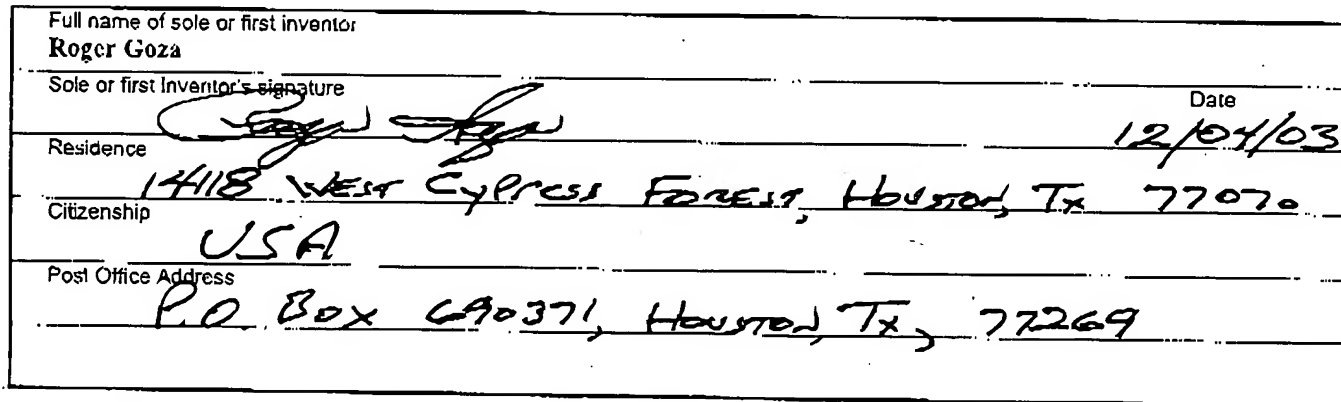 Full name of sole or first inventor
Roger Goza
Sole or first Inventor's signature
Date
12/04/03
Residence
14118 WEST CYPRESS FOREST, HOUSTON, Tx 77070
Citizenship
USA
Post Office Address
P.O. Box 690371, HOUSTON, Tx, 77269